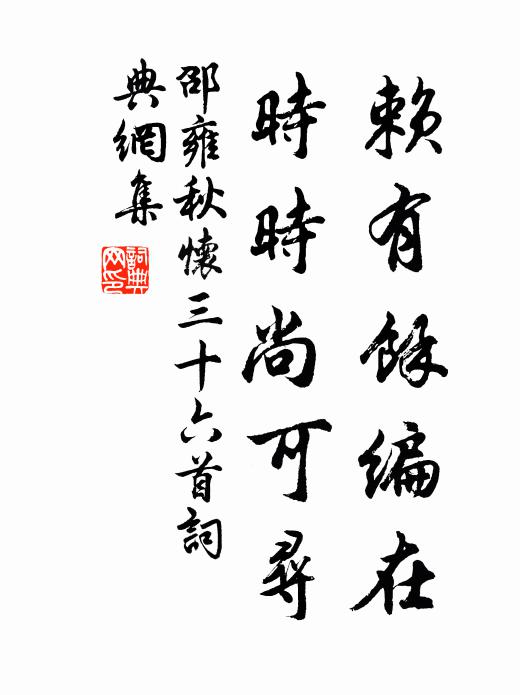 賴有餘編在
時時尚可尋
邵雍秋懷三十六首詞
典網集
詞典
网印